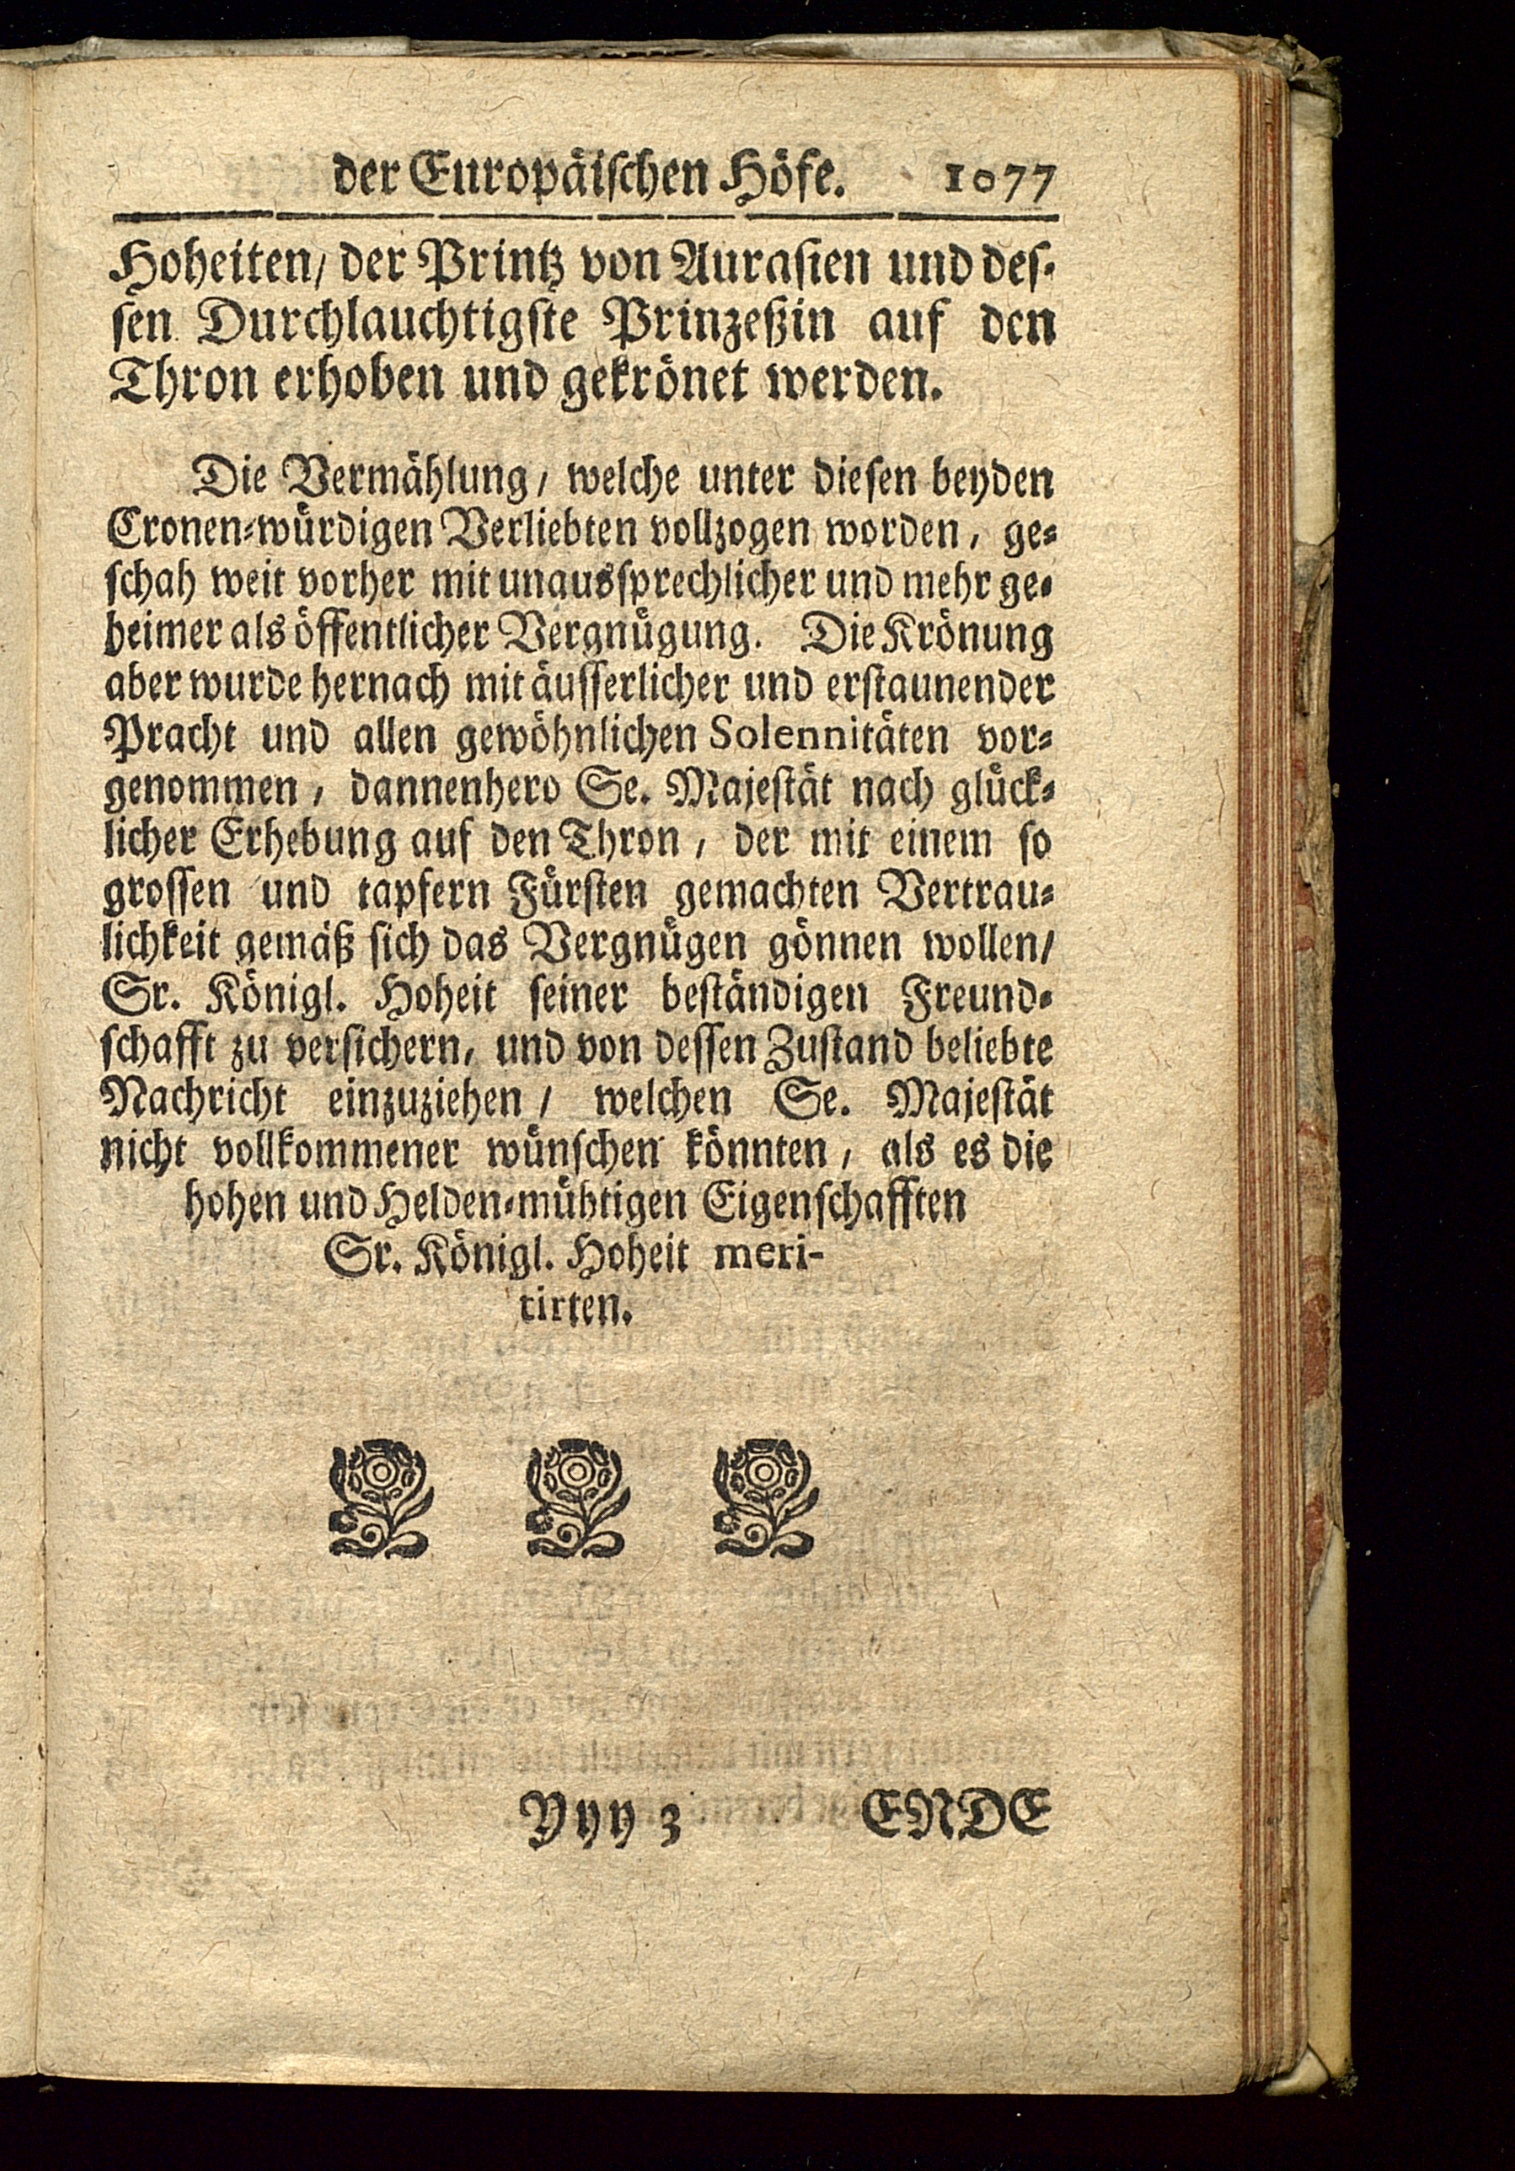 der Europäischen Höfe. 1077
Hoheiten/ der Printz von Aurasien und des-
sen Durchlauchtigste Prinzeßin auf den
Thron erhoben und gekrönet werden.
Die Vermählung/ welche unter diesen beyden
Cronen-würdigen Verliebten vollzogen worden, ge-
schah weit vorher mit unaussprechlicher und mehr ge-
heimer als öffentlicher Vergnügung. Die Krönung
aber wurde hernach mit äusserlicher und erstaunender
Pracht und allen gewöhnlichen Solennitäten vor-
genommen, dannenhero Se. Majestät nach glück-
licher Erhebung auf den Thron, der mit einem so
grossen und tapfern Fürsten gemachten Vertrau-
lichkeit gemäß sich das Vergnügen gönnen wollen/
Sr. Königl. Hoheit seiner beständigen Freund-
schafft zu versichern, und von dessen Zustand beliebte
Nachricht einzuziehen/ welchen Se. Majestät
nicht vollkommener wünschen könnten, als es die
hohen und Helden-mühtigen Eigenschafften
Sr. Königl. Hoheit meri-
tirten.
Yyy 3 ENDE